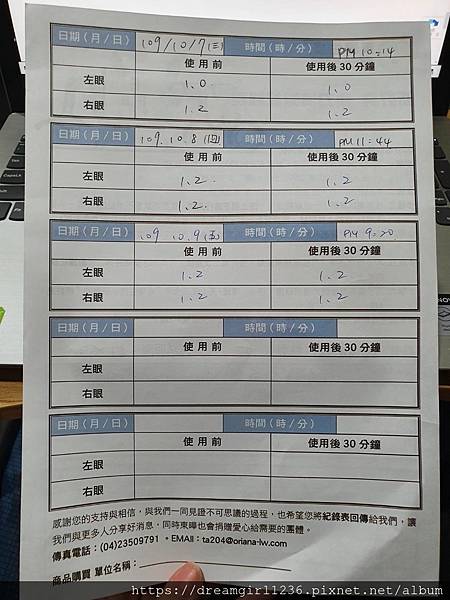 日期（月／日） 109/10/7(三) 時間（時／分） PM 10:14
使用前 使用後30分鐘
左眼 1.0 1.0
右眼 1.2 1.2
日期（月／日） 109.10.8(四) 時間（時／分） PM 11:44
使用前 使用後30分鐘
左眼 1.2 1.2
右眼 1.2 1.2
日期（月／日） 109 10.9(五) 時間（時／分） PM 9:20
使用前 使用後30分鐘
左眼 1.2 1.2
右眼 1.2 1.2
日期（月／日） 時間（時／分）
使用前 使用後30分鐘
左眼
右眼
日期（月／日） 時間（時／分）
使用前 使用後30分鐘
左眼
右眼
感謝您的支持與相信，與我們一同見證不可思議的過程，也希望您將紀錄表回傳給我們，讓
我們與更多人分享好消息，同時東暉也會捐贈愛心給需要的團體。
傳真電話：(04)23509791 。EMAIl：ta204@oriana-lw.com
商品購買 單位名稱：
https://dreamgirl1236.pixnet.net/album